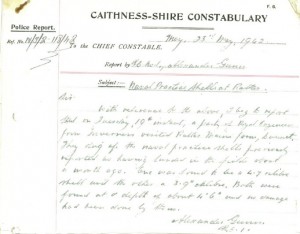 F. 8.
Police Report.
CAITHNESS-SHIRE CONSTABULARY
Ref. No.
May, 23rd May, 1942
To the CHIEF CONSTABLE.
Report by P.C. No. 1, Alexander Gunn
Subject:- Naval Practice Shells at Rattar.
Sir,
With reference to the above, I beg to report
that on Tuesday 19th instant, a party of Royal Engineers
from Inverness visited Rattar Mains farm, Dunnet.
They dug up the naval practice shells previously
reported as having landed in the fields about
a month ago. One was found to be a 4.7 calibre
shell and the other a 3.9" calibre. Both were
found at a depth of about 4' 6" and no damage
had been done by them.
Alexander Gunn
P.C. 1.